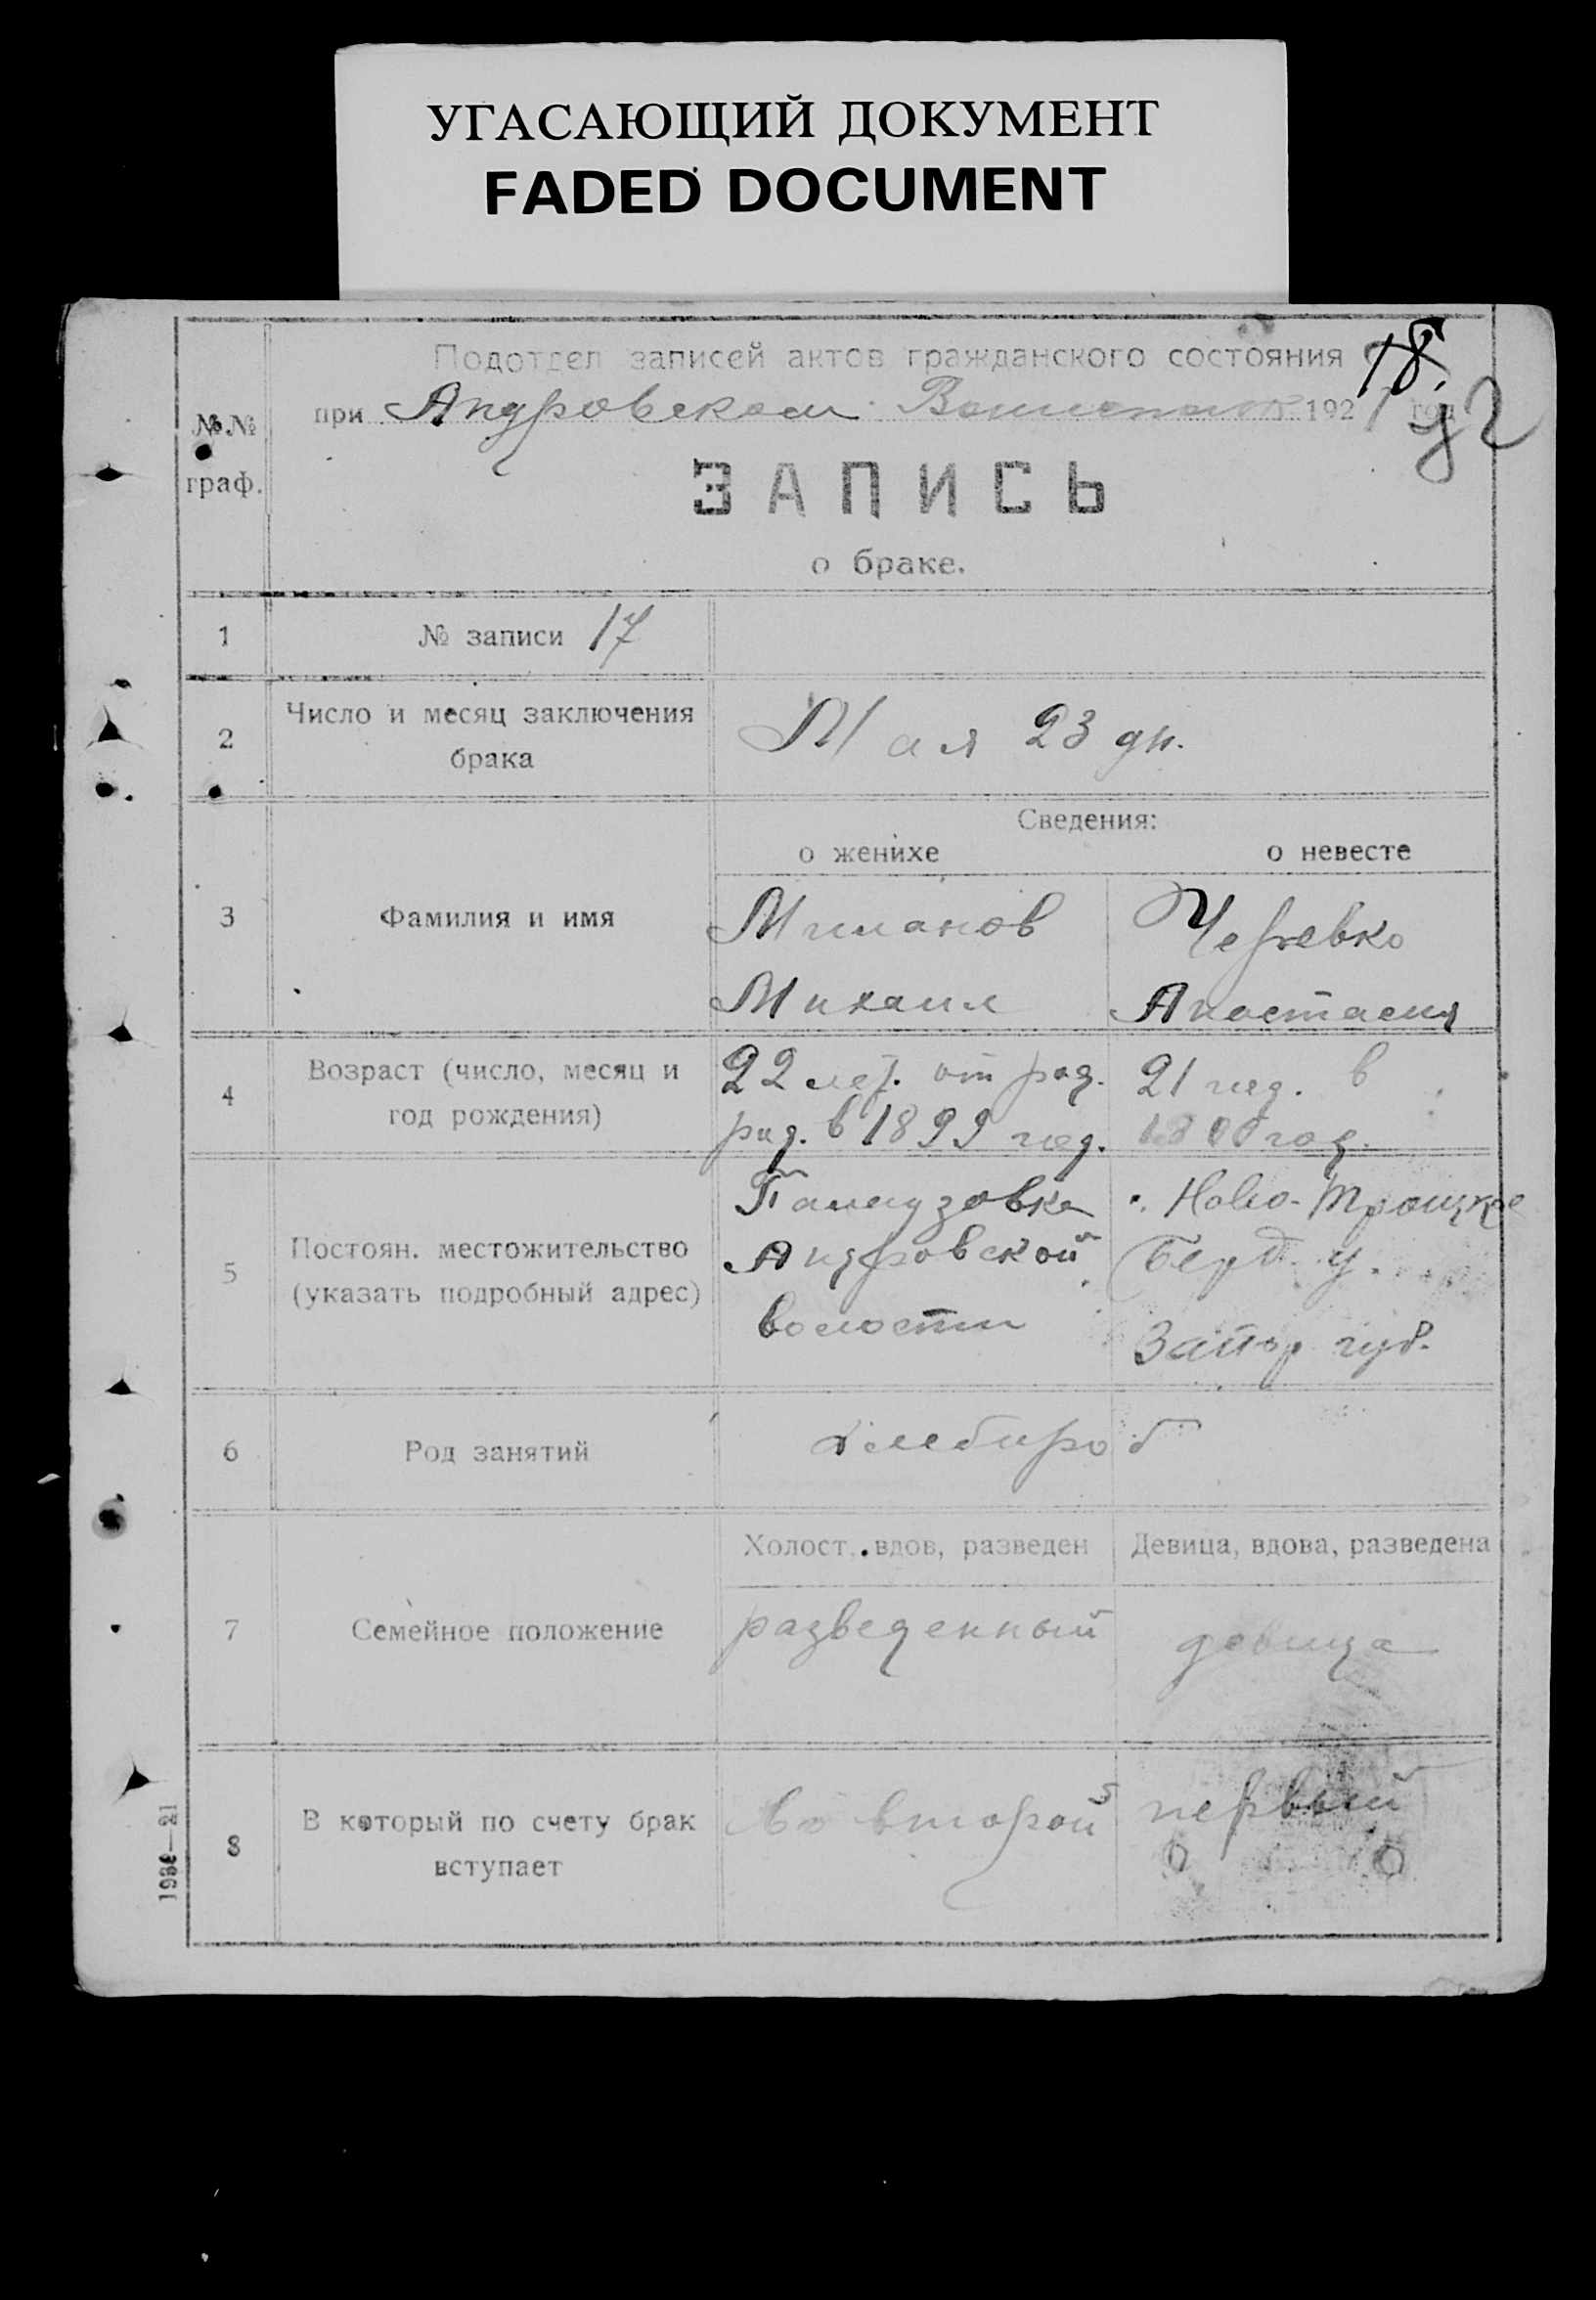 УГАСАЮЩИЙ ДОКУМЕНТ
FADED DOCUMENT
18.
Подотдел записей актов гражданского состояния
при Андровском 1921 год
№№ граф.
ЗАПИСЬ
о браке.
1 № записи 17
2 Число и месяц заключения брака
Мая 23 дн.
Сведения:
о женихе о невесте
3 Фамилия и имя
Миманов Черевко
Михаил Анастасия
4 Возраст (число, месяц и год рождения)
22 лет. от род. 21 год. в
род. в 1899 год. 1900 год.
5 Постоян. местожительство (указать подробный адрес)
Ново-Троицкое
Андровской Берд. у.
волости Запор губ.
6 Род занятий
хлебороб
Холост, вдов, разведен Девица, вдова, разведена
7 Семейное положение
разведенный девица
8 В который по счету брак вступает
во второй первый